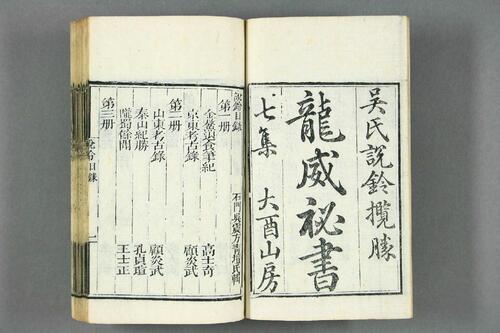 吳氏說鈴攬勝
龍威祕書
七集 大酉山房
說鈴目錄
第一册
金鰲退食筆紀 高士奇
京東考古錄 顧炎武
第二册
山東考古錄 顧炎武
泰山紀勝 孔貞瑄
隴蜀餘聞 王士正
第三册
說鈴目錄